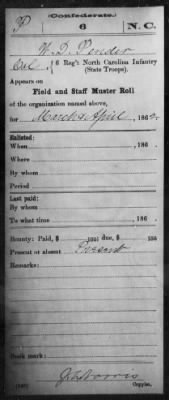 (Confederate.)
P 6 N.C.
W. D. Pender
Col., 6 Reg't North Carolina Infantry
(State Troops).
Appears on
Field and Staff Muster Roll
of the organization named above,
for March & April, 1862.
Enlisted:
When, 186 .
Where
By whom
Period
Last paid:
By whom
To what time , 186 .
Bounty: Paid, $ 100; due, $ 100
Present or absent Present
Remarks:
Book mark:
Copyist.